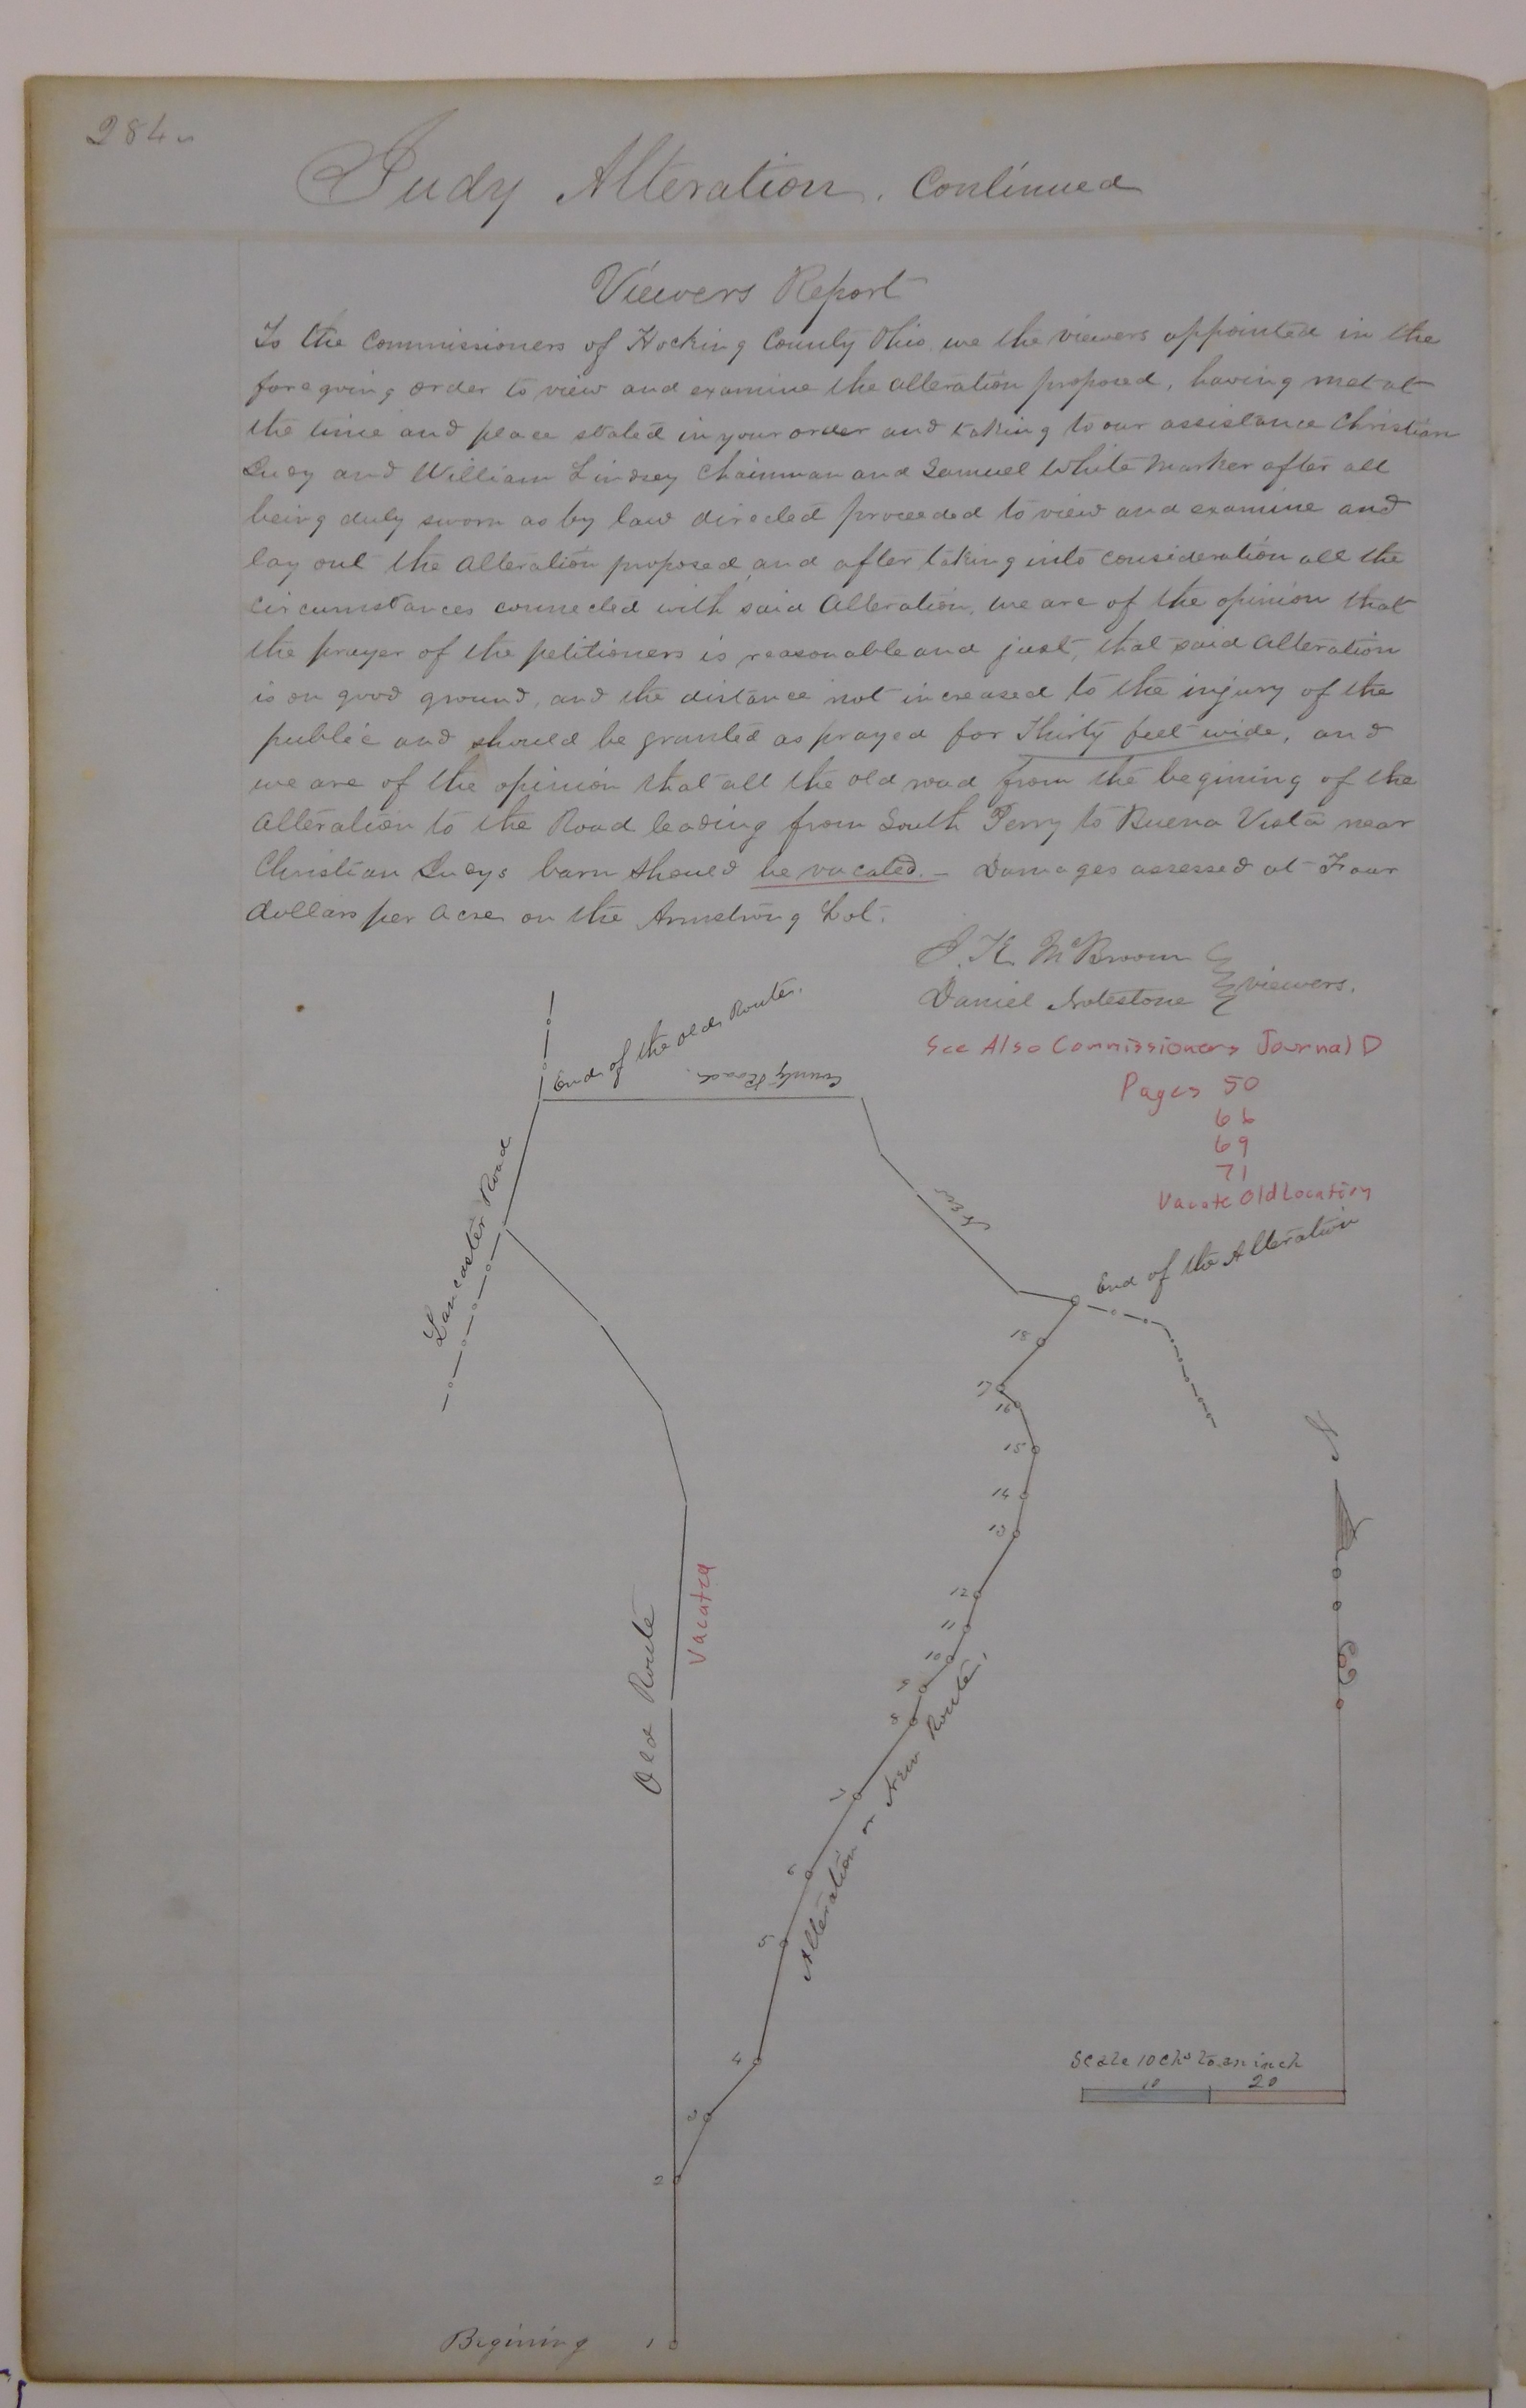 284
Judy Alteration. Continued
Viewers Report
To the Commissioners of Hocking County Ohio we the viewers appointed in the
foregoing order to view and examine the alteration proposed, having met at
the time and place stated in your order and taking to our assistance Christian
and William Lindsey Chainman and Samuel White Marker after all
being duly sworn as by law directed proceeded to view and examine and
lay out the Alteration proposed, and after taking into consideration all the
circumstances connected with said Alteration, we are of the opinion that
the prayer of the petitioners is reasonable and just, that said Alteration
is on good ground, and the distance not increased to the injury of the
public and should be granted as prayed for Thirty feet wide, and
we are of the opinion that all the old road from the begining of the
Alteration to the Road leading from South Perry to Buena Vista near
Christian barn should be vacated. - Damages assessed at Four
dollars per Acre on the Armstrong Lot.
McBroom
Daniel Notestone viewers.
See Also Commissioners Journal D
Pages 50
66
69
71
Vacate Old Location
End of the old Route.
County Road.
Lancaster Road
End of the Alteration
18
17
16
15
14
13
12
11
10
9
8
7
6
5
4
3
2
Old Route
Vacated
Alteration or New Route.
Scale 10 chs to an inch
10 20
Begining 1